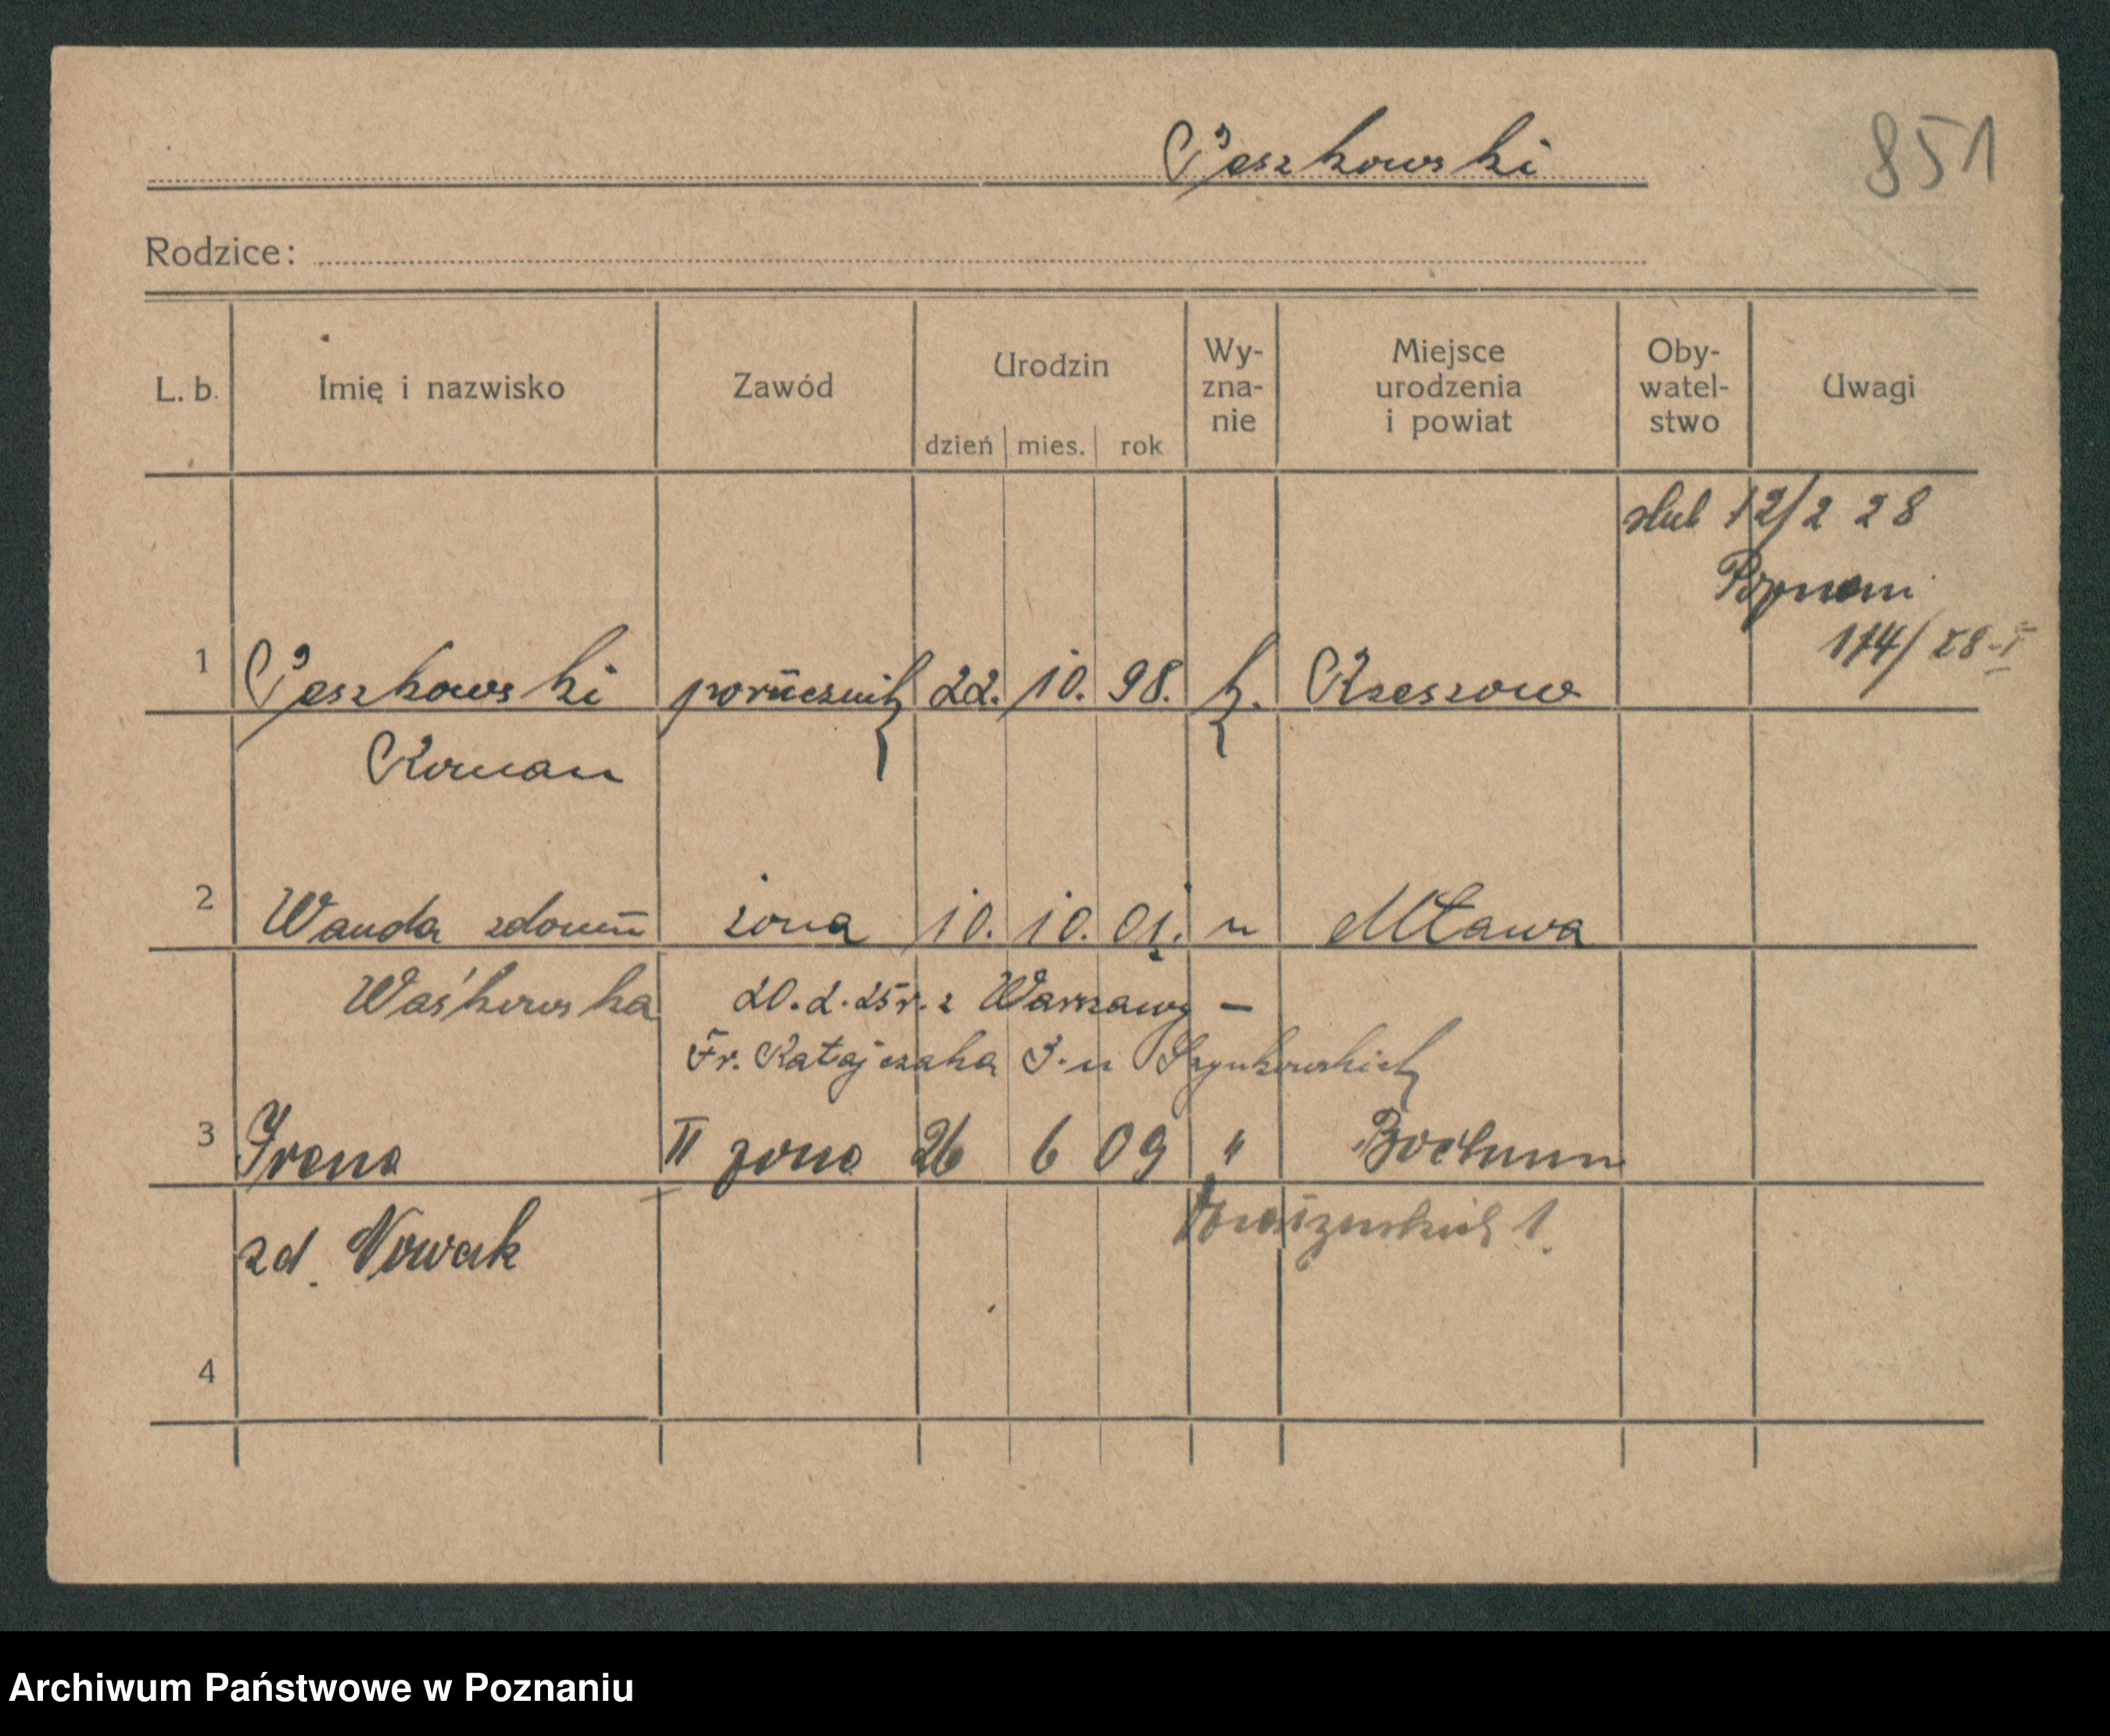 Peszkowski
851
Rodzice:
L. b. Imię i nazwisko Zawód Urodzin dzień mies. rok Wy-zna-nie Miejsce urodzenia i powiat Oby-watel-stwo Uwagi
ślub 12/2 28
Poznań
174/28-I
1 Peszkowski porucznik 22. 10. 98. k. Rzeszow
Roman
2 Wanda zdomu żona 10. 10. 01. " Mława
Waśkowska 20.2.25r. z Warszawy –
Fr. Ratajczaka 3. u
3 Irena II żona 26 6 09 " Bochum
zd. Nowak 1.
4
Archiwum Państwowe w Poznaniu